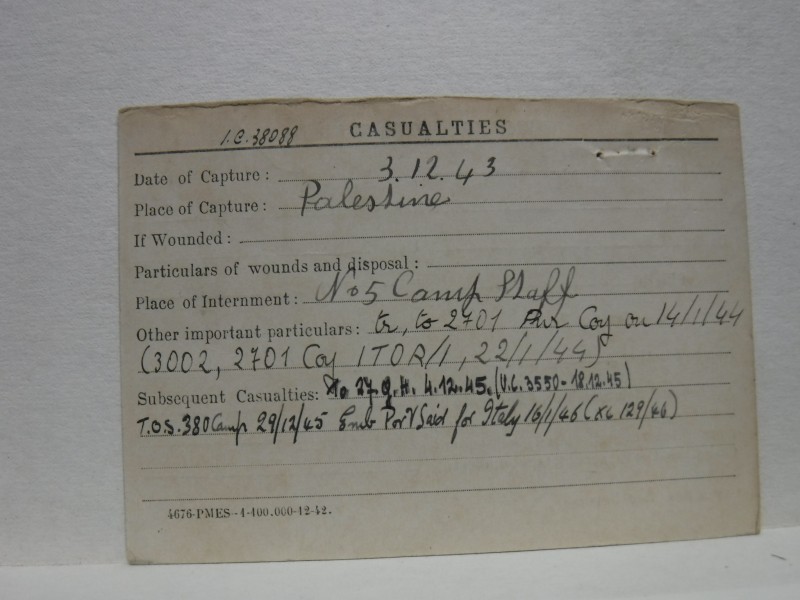 I.C. 38088 CASUALTIES
Date of Capture: 3.12.43
Place of Capture: Palestine
If Wounded:
Particulars of wounds and disposal:
Place of Internment: No 5 Camp Staff
Other important particulars: tr, to 2701 Coy on 14/1/44
(3002, 2701 Coy ITOR/1, 22/1/44)
Subsequent Casualties: To 27.G.H. 4.12.45. (U.C. 3550-18.12.45)
T.O.S. 380 Camp 29/12/45 Emb Port Said for Italy 16/1/46 (XC 129/46)
4676-PMES-1-100.000-12-42.